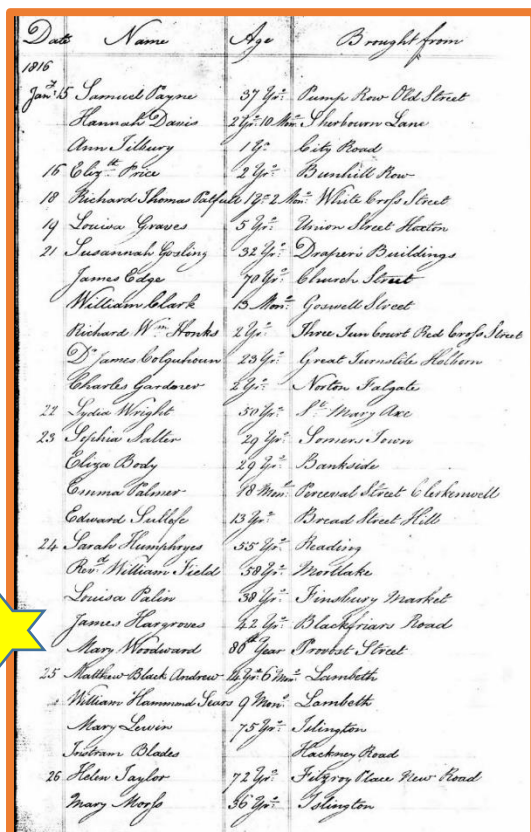 Date Name Age Brought from
1816
Jany 15 Samuel Payne 37 Yrs Pump Row Old Street
Hannah Davis 2 Yrs 10 Mons Sherbourn Lane
Ann Tilbury 1 Yr City Road
16 Elizth Price 2 Yrs Bunhill Row
18 Richard Thomas 1 Yr 2 Mons White Cross Street
19 Louisa Graves 5 Yrs Union Street Hoxton
21 Susannah Gosling 32 Yrs Drapers Buildings
James Edge 70 Yrs Church Street
William Clark 13 Mons Goswell Street
Richard Wm Honks 2 Yrs Three Tun Court Red Cross Street
Dr James Colquhoun 23 Yrs Great Turnstile Holborn
Charles Gardner 2 Yrs Norton Falgate
22 Lydia Wright 50 Yrs St Mary Axe
23 Sophia Salter 29 Yrs Somers Town
Eliza Body 29 Yrs Bankside
Emma Palmer 18 Mons Perceval Street Clerkenwell
Edward 13 Yrs Bread Street Hill
24 Sarah Humphryes 55 Yrs Reading
Revd William Field 58 Yrs Mortlake
Louisa Palin 38 Yrs Finsbury Market
James Hargroves 42 Yrs Blackfriars Road
Mary Woodward 80th Year Provost Street
25 Matthew Black Andrew 4 Yrs 6 Mons Lambeth
William Hammond Sears 9 Mons Lambeth
Mary Lewin 75 Yrs Islington
Tristram Blades Hackney Road
26 Helen Taylor 72 Yrs Fitzroy Place New Road
Mary Morss 36 Yrs Islington